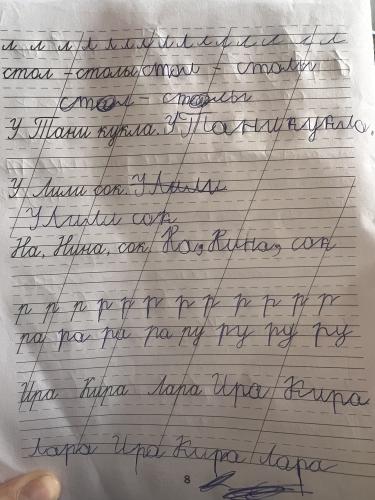 л л л л л л л л л л л л л л л л
стол – столы стол – столы
стол – столы
У Тани кукла. У Тани кукла.
У Лили сок. У Лили
У Лили сок
На, Нина, сок. На, Нина, сок
р р р р р р р р р р р р р
ра ра ра ра ру ру ру ру
Ира Кира Лара Ира Кира
Лара Ира Кира Лара
8